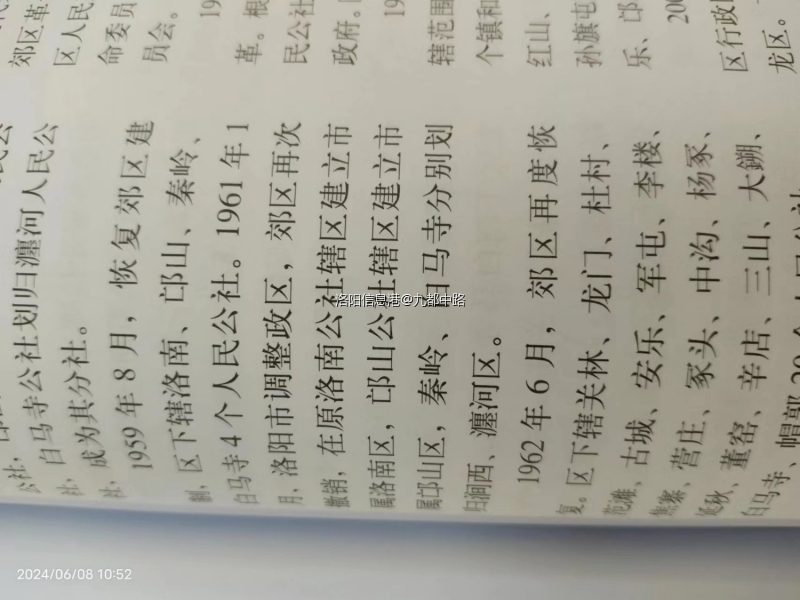 白马寺公社划归瀍河人民公
社，成为其分社。
1959年8月，恢复郊区建
制，区下辖洛南、邙山、秦岭、
白马寺4个人民公社。1961年1
月，洛阳市调整政区，郊区再次
撤销，在原洛南公社辖区建立市
属洛南区，邙山公社辖区建立市
属邙山区，秦岭、白马寺分别划
归涧西、瀍河区。
1962年6月，郊区再度恢
复。区下辖关林、龙门、杜村、
范滩、古城、安乐、军屯、李楼、
焦寨、营庄、冢头、中沟、杨冢、
董窑、辛店、三山、大䥽、
白马寺、帽郭20个人民公社
郊区革
区人民
命委员
员会。
19
革。根
民公社
政府。
19
辖范围
个镇和
红山、
孙旗屯
乐、邙
200
区行政
龙区。
洛阳信息港@九都中路
2024/06/08 10:52